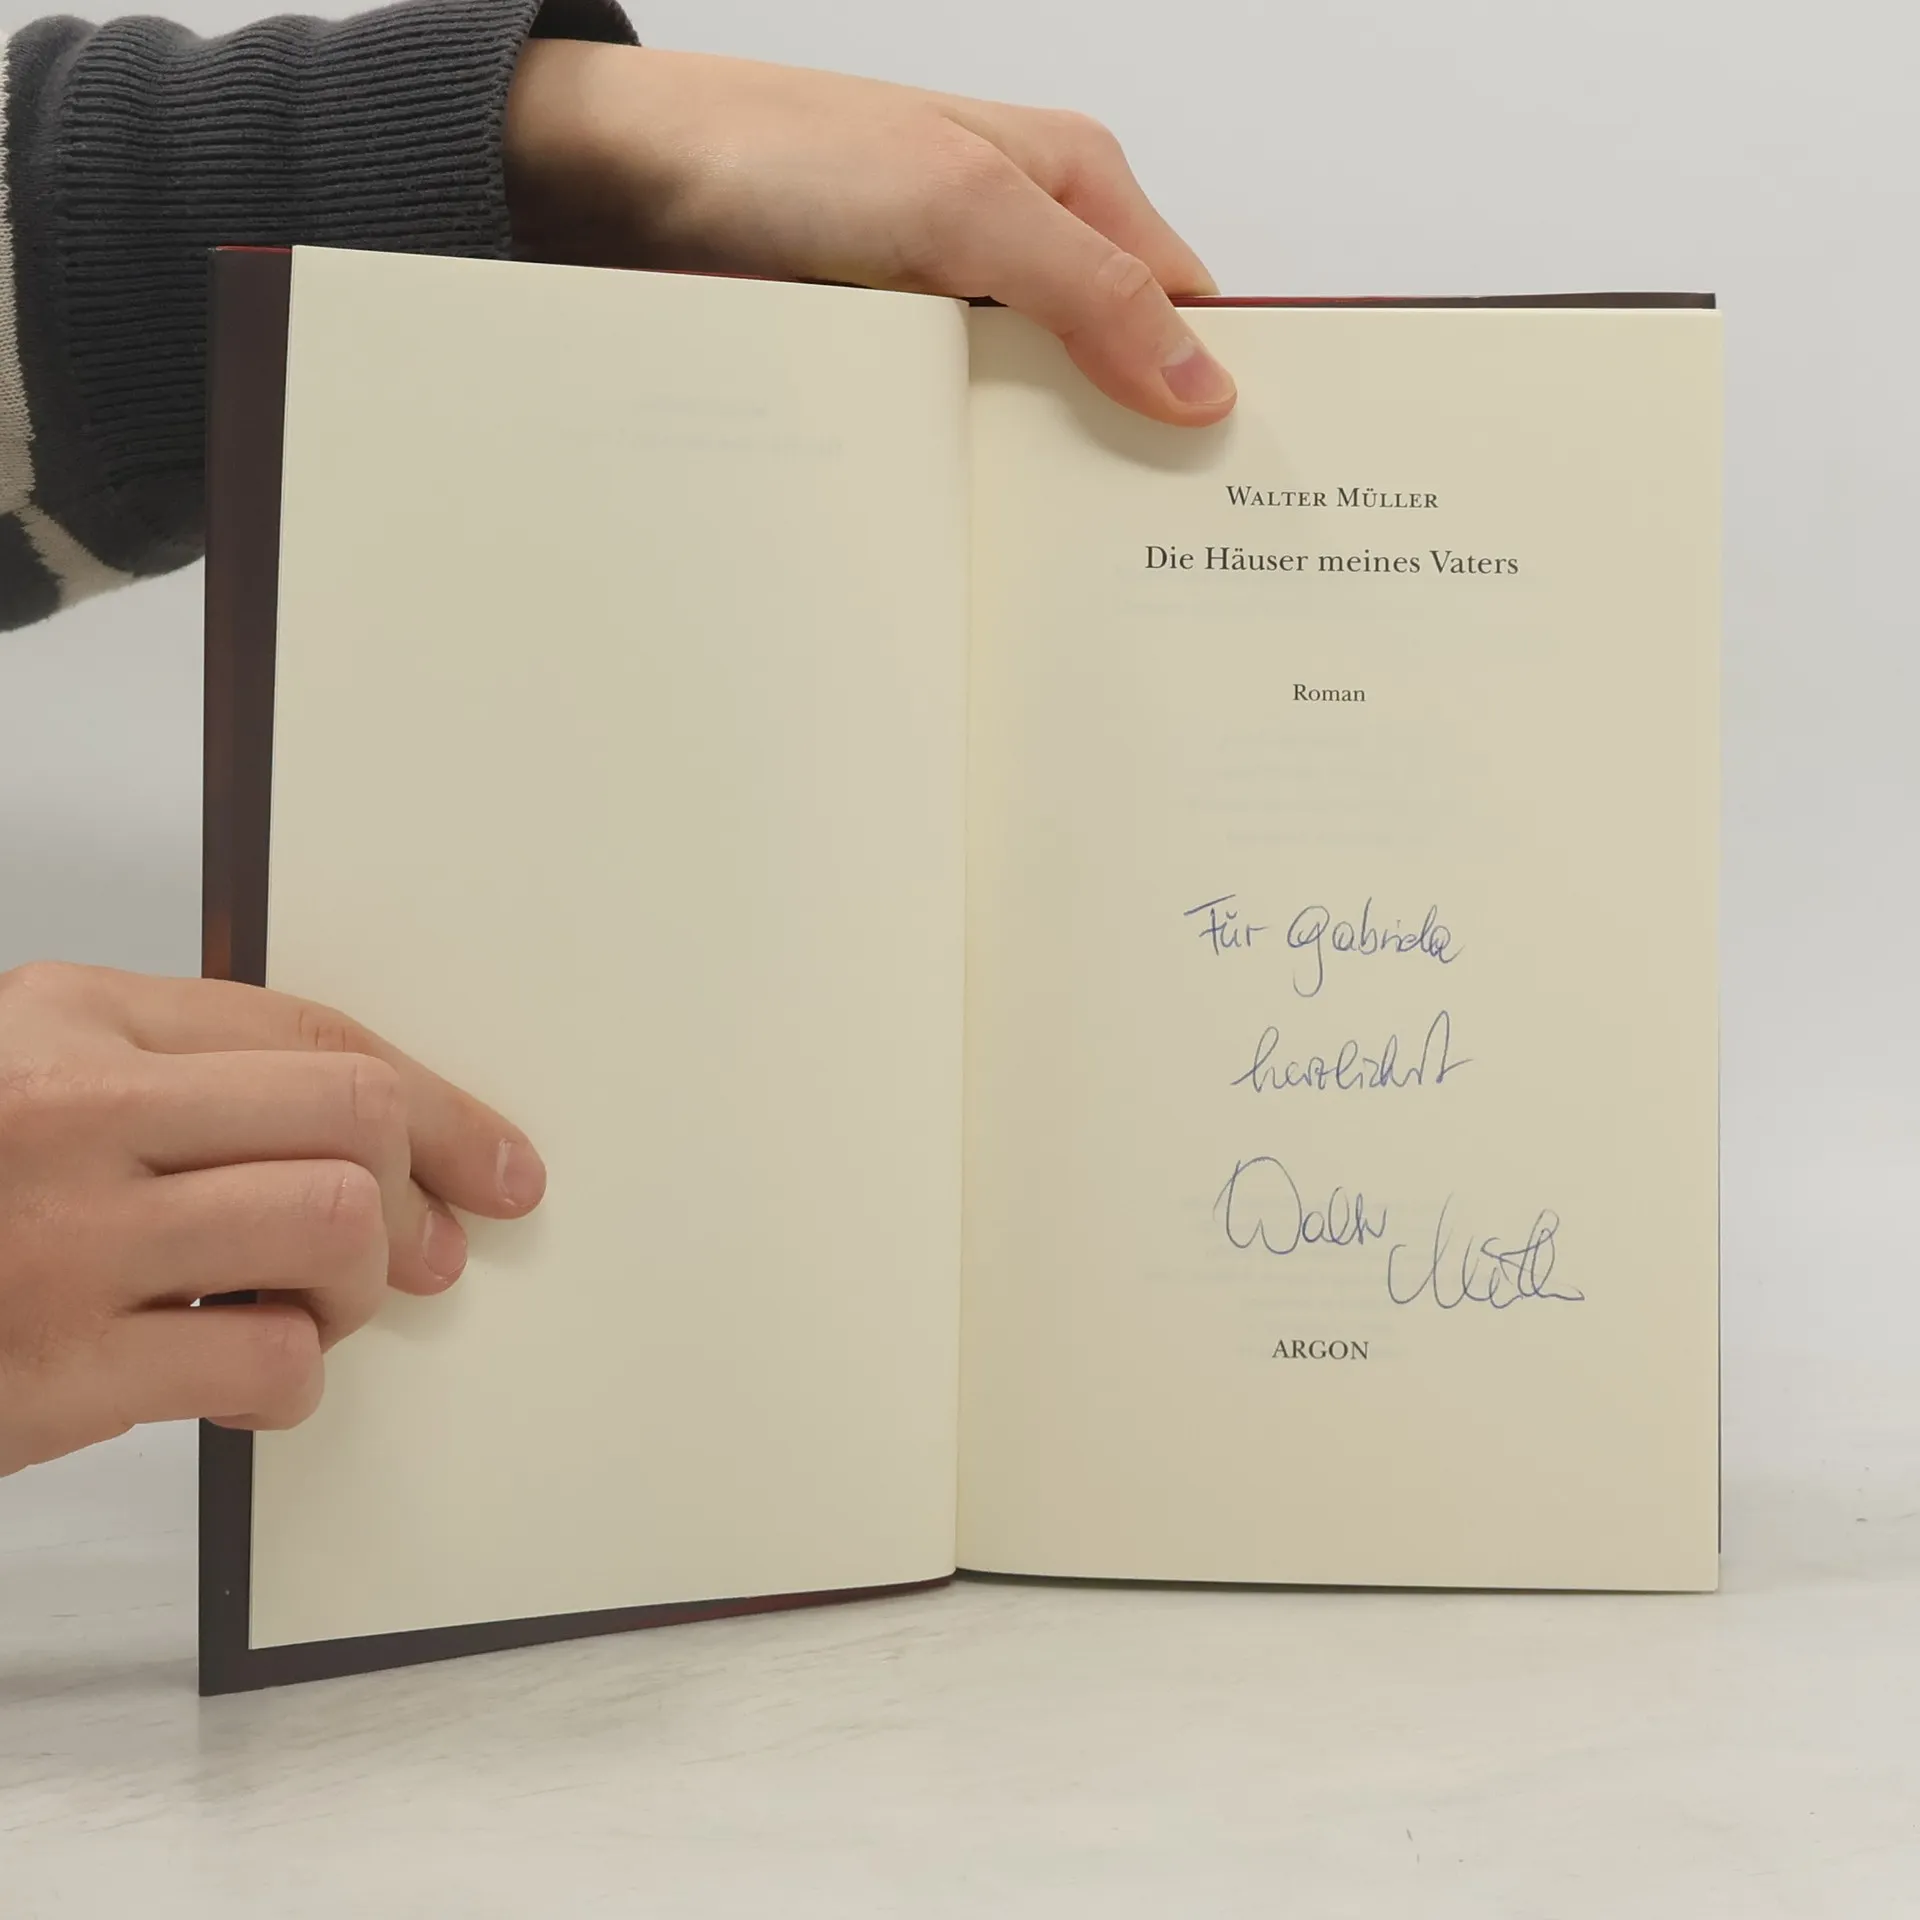 WALTER MÜLLER
Die Häuser meines Vaters
Roman
Für Gabriela
herzlichst
Walter Müller
ARGON